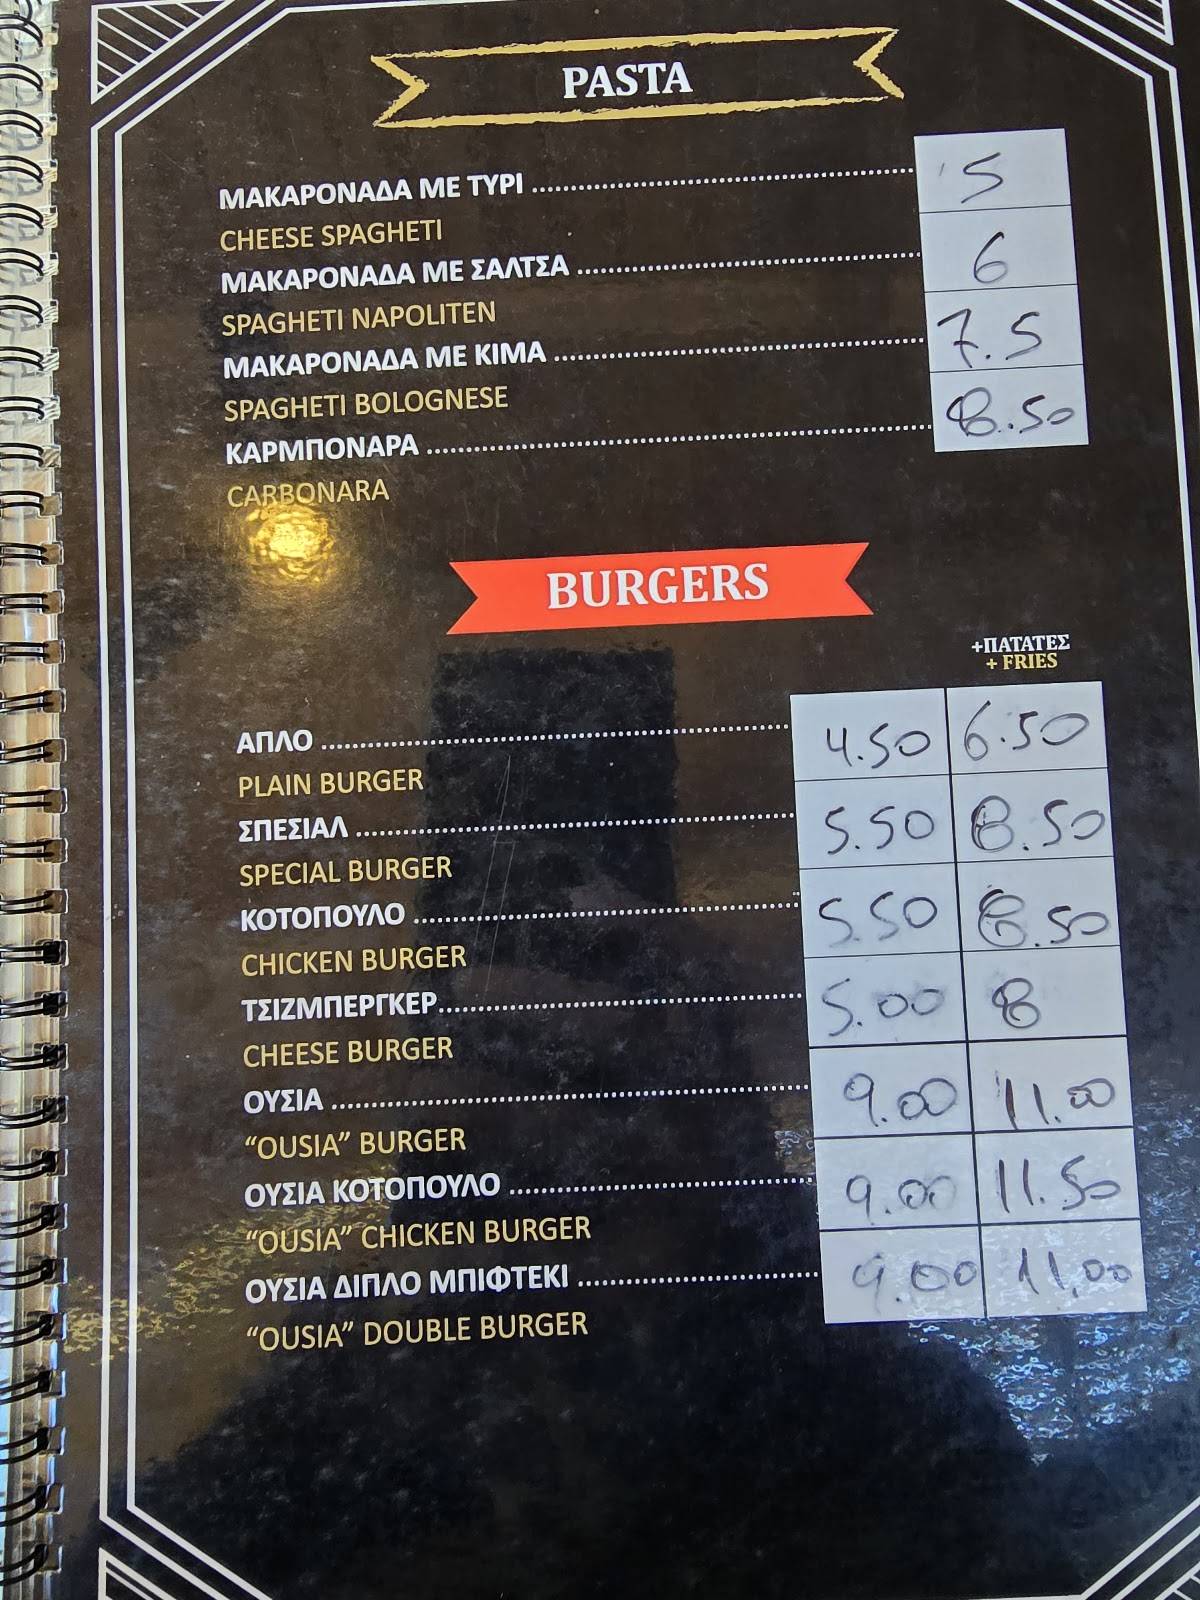 PASTA
ΜΑΚΑΡΟΝΑΔΑ ΜΕ ΤΥΡΙ ........ 5
CHEESE SPAGHETI
ΜΑΚΑΡΟΝΑΔΑ ΜΕ ΣΑΛΤΣΑ ........ 6
SPAGHETI NAPOLITEN
ΜΑΚΑΡΟΝΑΔΑ ΜΕ ΚΙΜΑ ........ 7.5
SPAGHETI BOLOGNESE
ΚΑΡΜΠΟΝΑΡΑ ........ 8.50
CARBONARA
BURGERS
+ΠΑΤΑΤΕΣ
+ FRIES
ΑΠΛΟ ........ 4.50 6.50
PLAIN BURGER
ΣΠΕΣΙΑΛ ........ 5.50 8.50
SPECIAL BURGER
ΚΟΤΟΠΟΥΛΟ ........ 5.50 8.50
CHICKEN BURGER
ΤΣΙΖΜΠΕΡΓΚΕΡ ........ 5.00 8
CHEESE BURGER
ΟΥΣΙΑ ........ 9.00 11.00
“OUSIA” BURGER
ΟΥΣΙΑ ΚΟΤΟΠΟΥΛΟ ........ 9.00 11.50
“OUSIA” CHICKEN BURGER
ΟΥΣΙΑ ΔΙΠΛΟ ΜΠΙΦΤΕΚΙ ........ 9.00 11.00
“OUSIA” DOUBLE BURGER